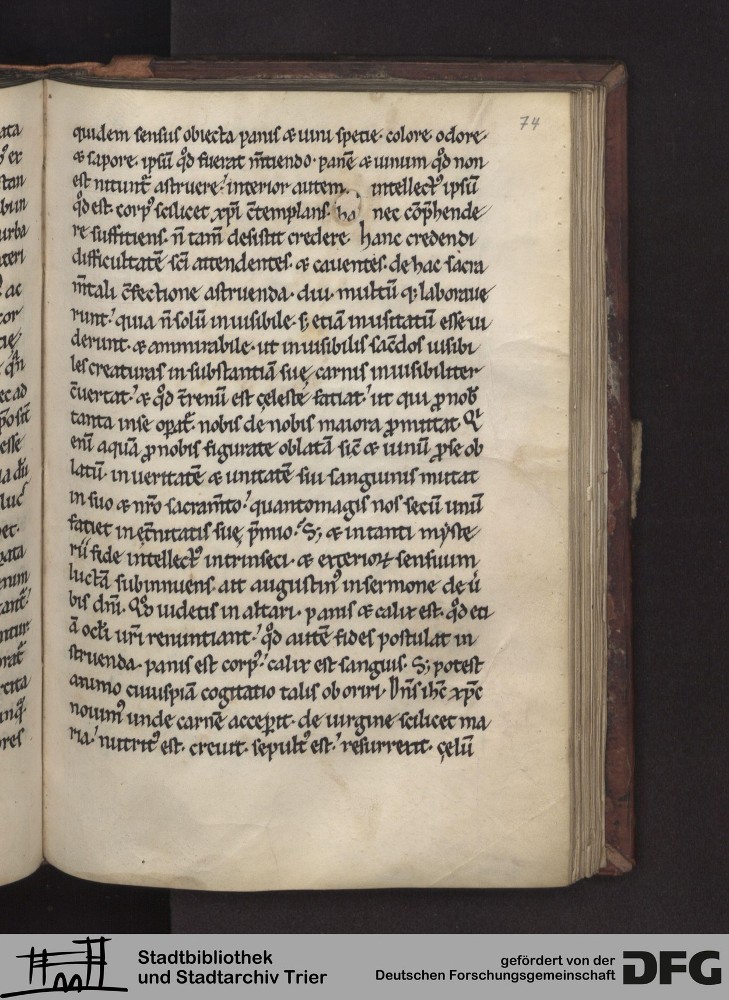 74
quidem sensus obiecta panis & uini specie· colore· odore·
& sapore· ipsū qd̄ fuerat m̄tiendo· panē & uinum qd̄ non
est nitunt̄ astruere· interior autem· intellectꝰ ipsū
qd̄ est· corpꝰ scilicet xp̄i c̄templans· nec cōp̄hende
re sufficiens· n̄ tam̄ desistit credere· hanc credendi
difficultatē sc̄i attendentes· & cauentes· de hac sacra
m̄tali c̄fectione astruenda· diu multū q; laboraue
runt· quia n̄ solū inuisibile· s; etiā inusitatū esse ui
derunt· & ammirabile· ut inuisibilis sac̄dos uisibi
les creaturas in substantiā suę carnis inuisibiliter
c̄uertat· & qd̄ t̄renū est cęleste faciat· ut qui ꝓ nob̄
tanta in se opat̄· nobis de nobis maiora ꝓmittat· Q̄
enī aquā ꝓ nobis figurate oblatā sic̄ & uinū ꝓ se ob
latū· in ueritatē & unitatē sui sanguinis mutat
in suo & nr̄o sacram̄to· quantomagis nos secū unū
faciet in ęt̄nitatis suę p̄mio· S; & in tanti myste
rii fide intellectꝰ intrinseci· & exterioꝝ sensuum
luctā subinnuens· ait augustinꝰ in sermone de ū
bis dn̄i· Qd̄ uidetis in altari· panis & calix est· qd̄ eti
ā ocl̄i ur̄i renuntiant· qd̄ autē fides postulat in
struenda· panis est corpꝰ· calix est sanguis· S; potest
animo cuiuspiā cogitatio talis oboriri· Dn̄s ih̄c xp̄c
nouimꝰ unde carnē accep̄it· de uirgine scilicet ma
ria· nutritꝰ est· creuit· sepultꝰ est· resurrexit· cęlū
Stadtbibliothek
und Stadtarchiv Trier
gefördert von der
Deutschen Forschungsgemeinschaft
DFG